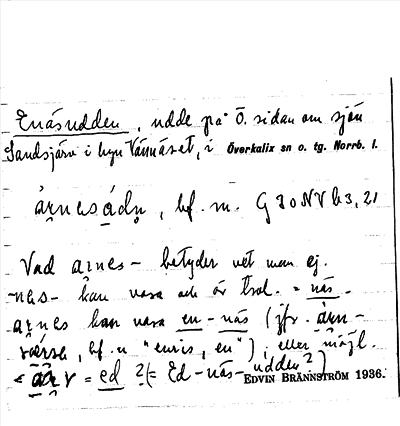 Enäsudden, udde på Ö. sidan om sjön
Sandsjärv i byn Vännäset, i Överkalix sn o. tg. Norrb. l.
årnesádn, bf. m. G 30 N V b 3, 21
Vad arnes- betyder vet man ej.
-nes- kan vara och är trol. = näs.
arnes kan vara en-näs (jfr.
bf. n "enris, en"), eller möjl.
= ed ? (= Ed-näs-udden?)
EDVIN BRÄNNSTRÖM 1936.